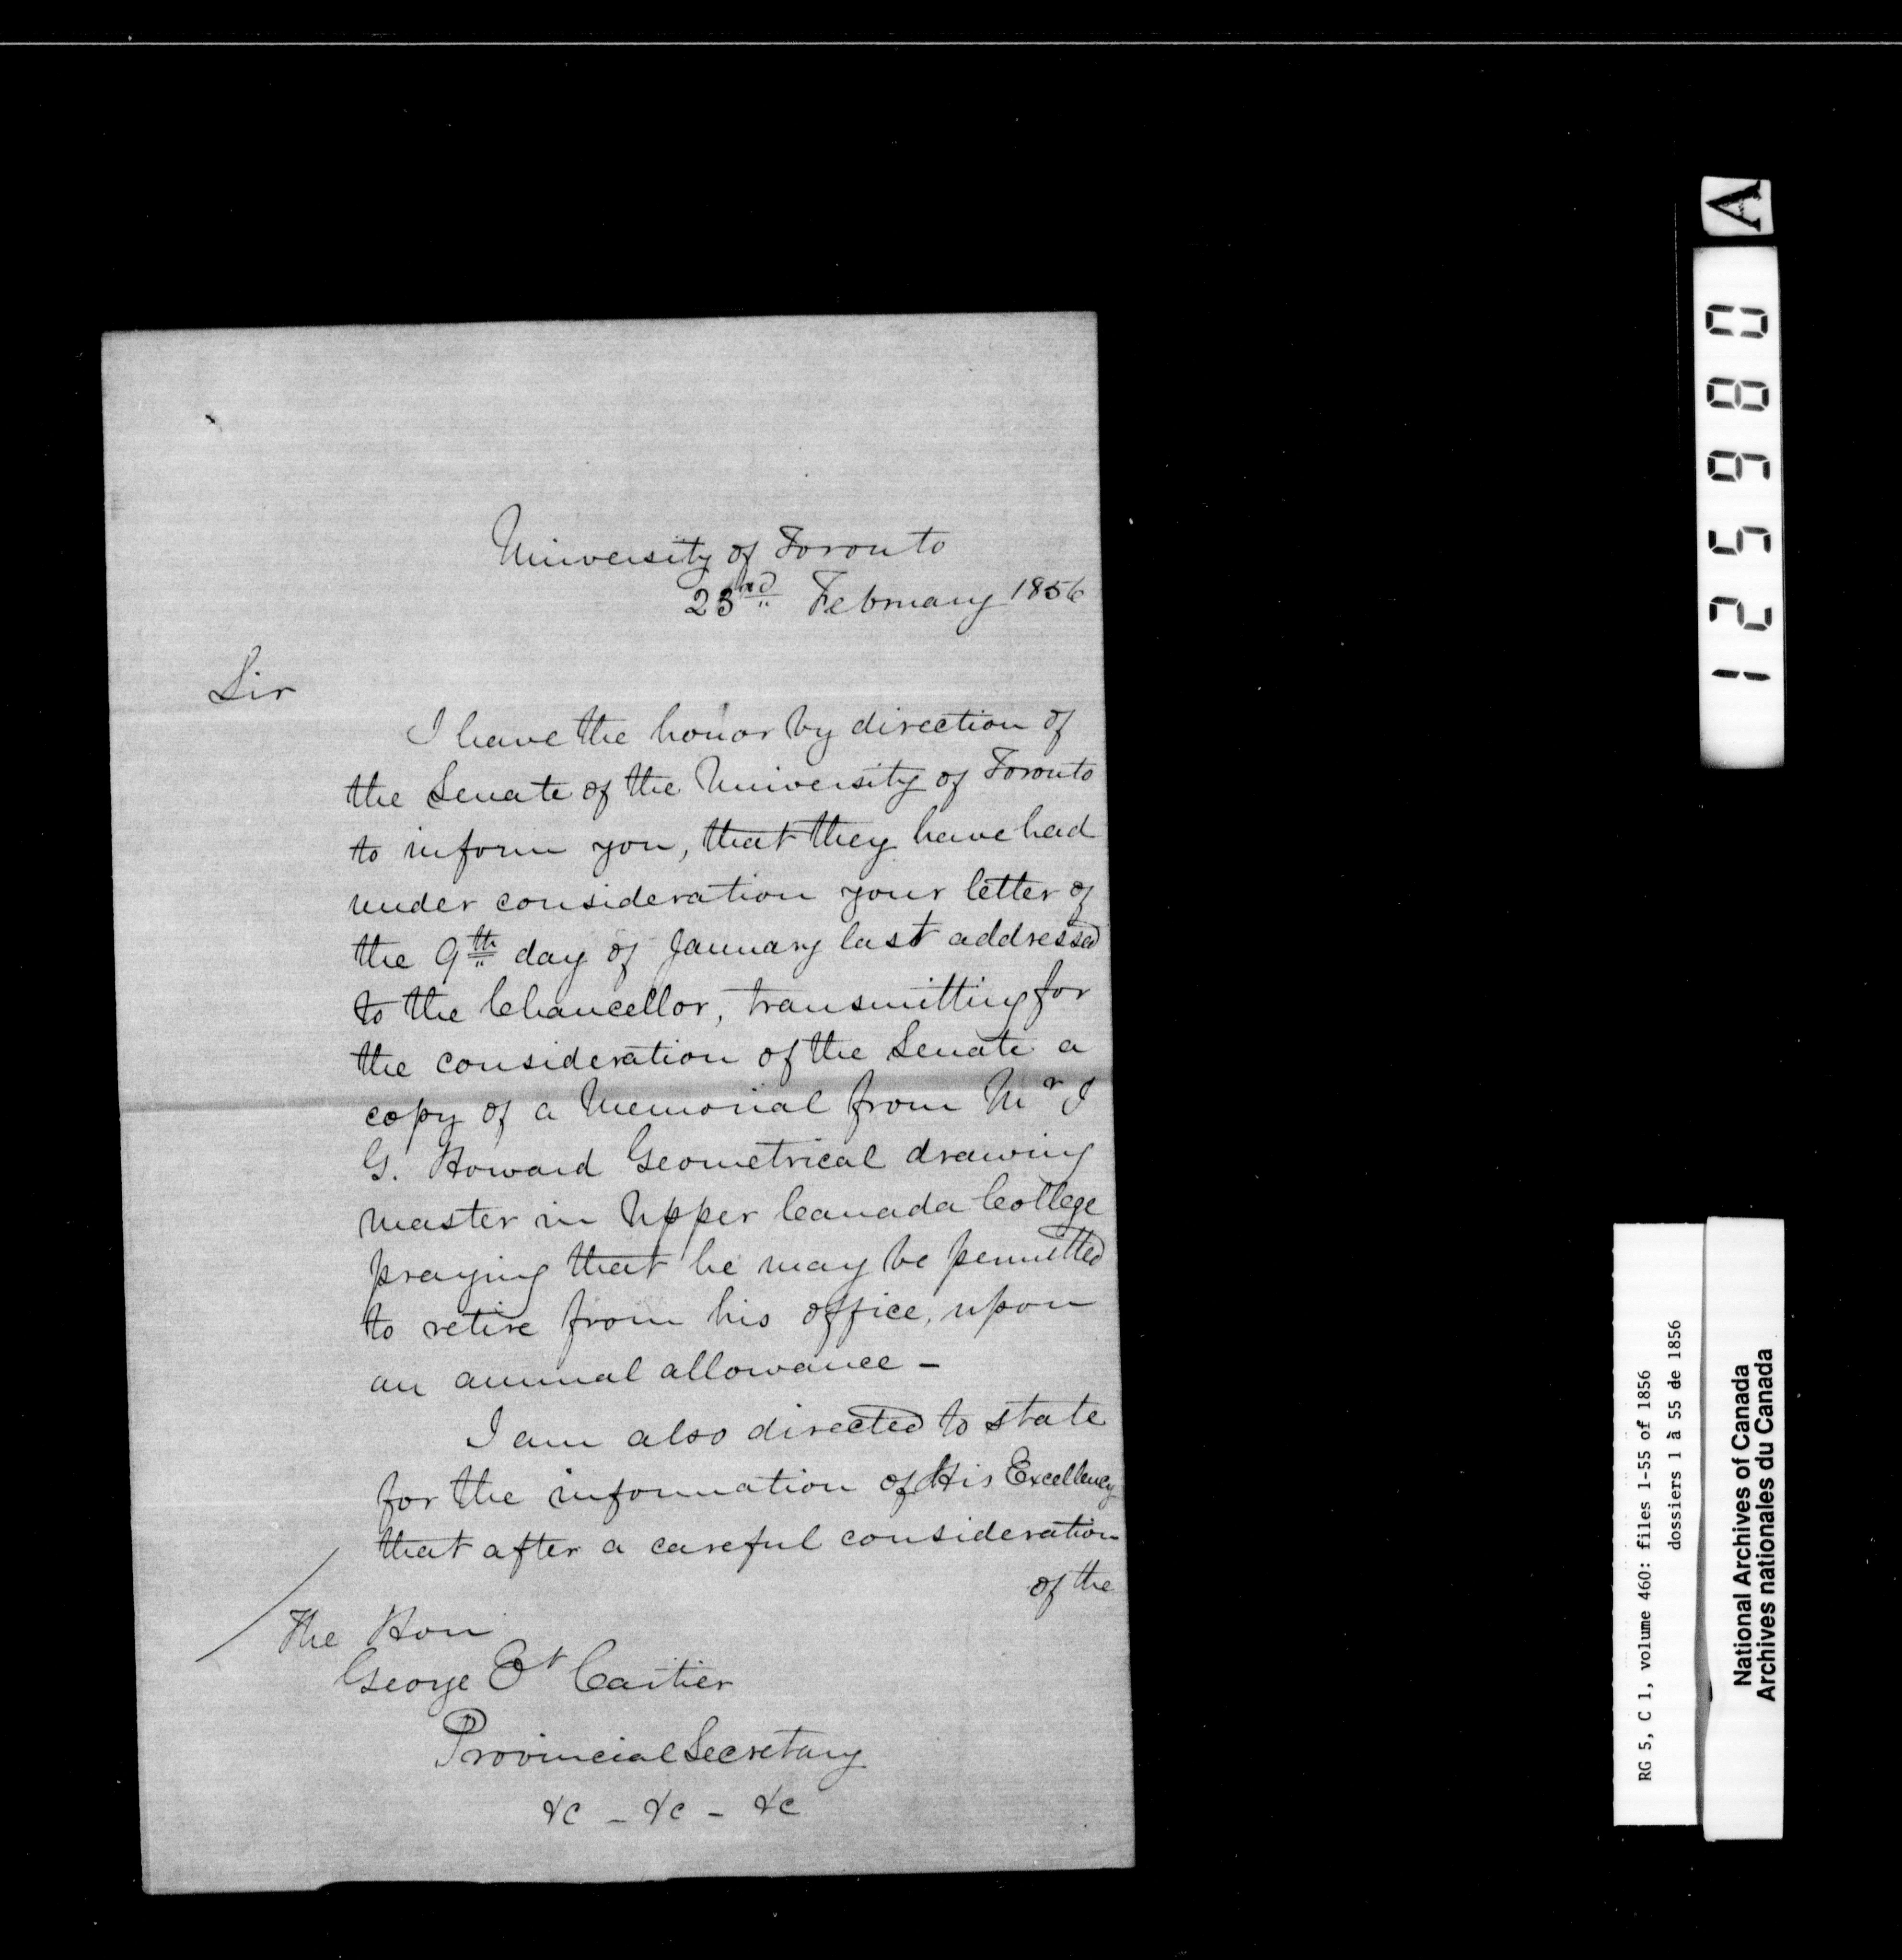 University of Toronto
23rd February 1856
Sir
I have the honor by direction of
the Senate of the University of Toronto
to inform you, that they have had
under consideration your letter of
the 9th day of January last addressed
to the Chancellor, transmitting for
the consideration of the Senate a
copy of a Memorial from Mr J
G. Howard Geometrical drawing
master in Upper Canada College
praying that he may be permitted
to retire from his office, upon
an annual allowance –
I am also directed to state
for the information of His Excellency
that after a careful consideration
of the
The Hon
George Et Cartier
Provincial Secretary
&c – &c – &c
A
125980
RG 5, C 1, volume 460: files 1-55 of 1856
dossiers 1 à 55 de 1856
National Archives of Canada
Archives nationales du Canada